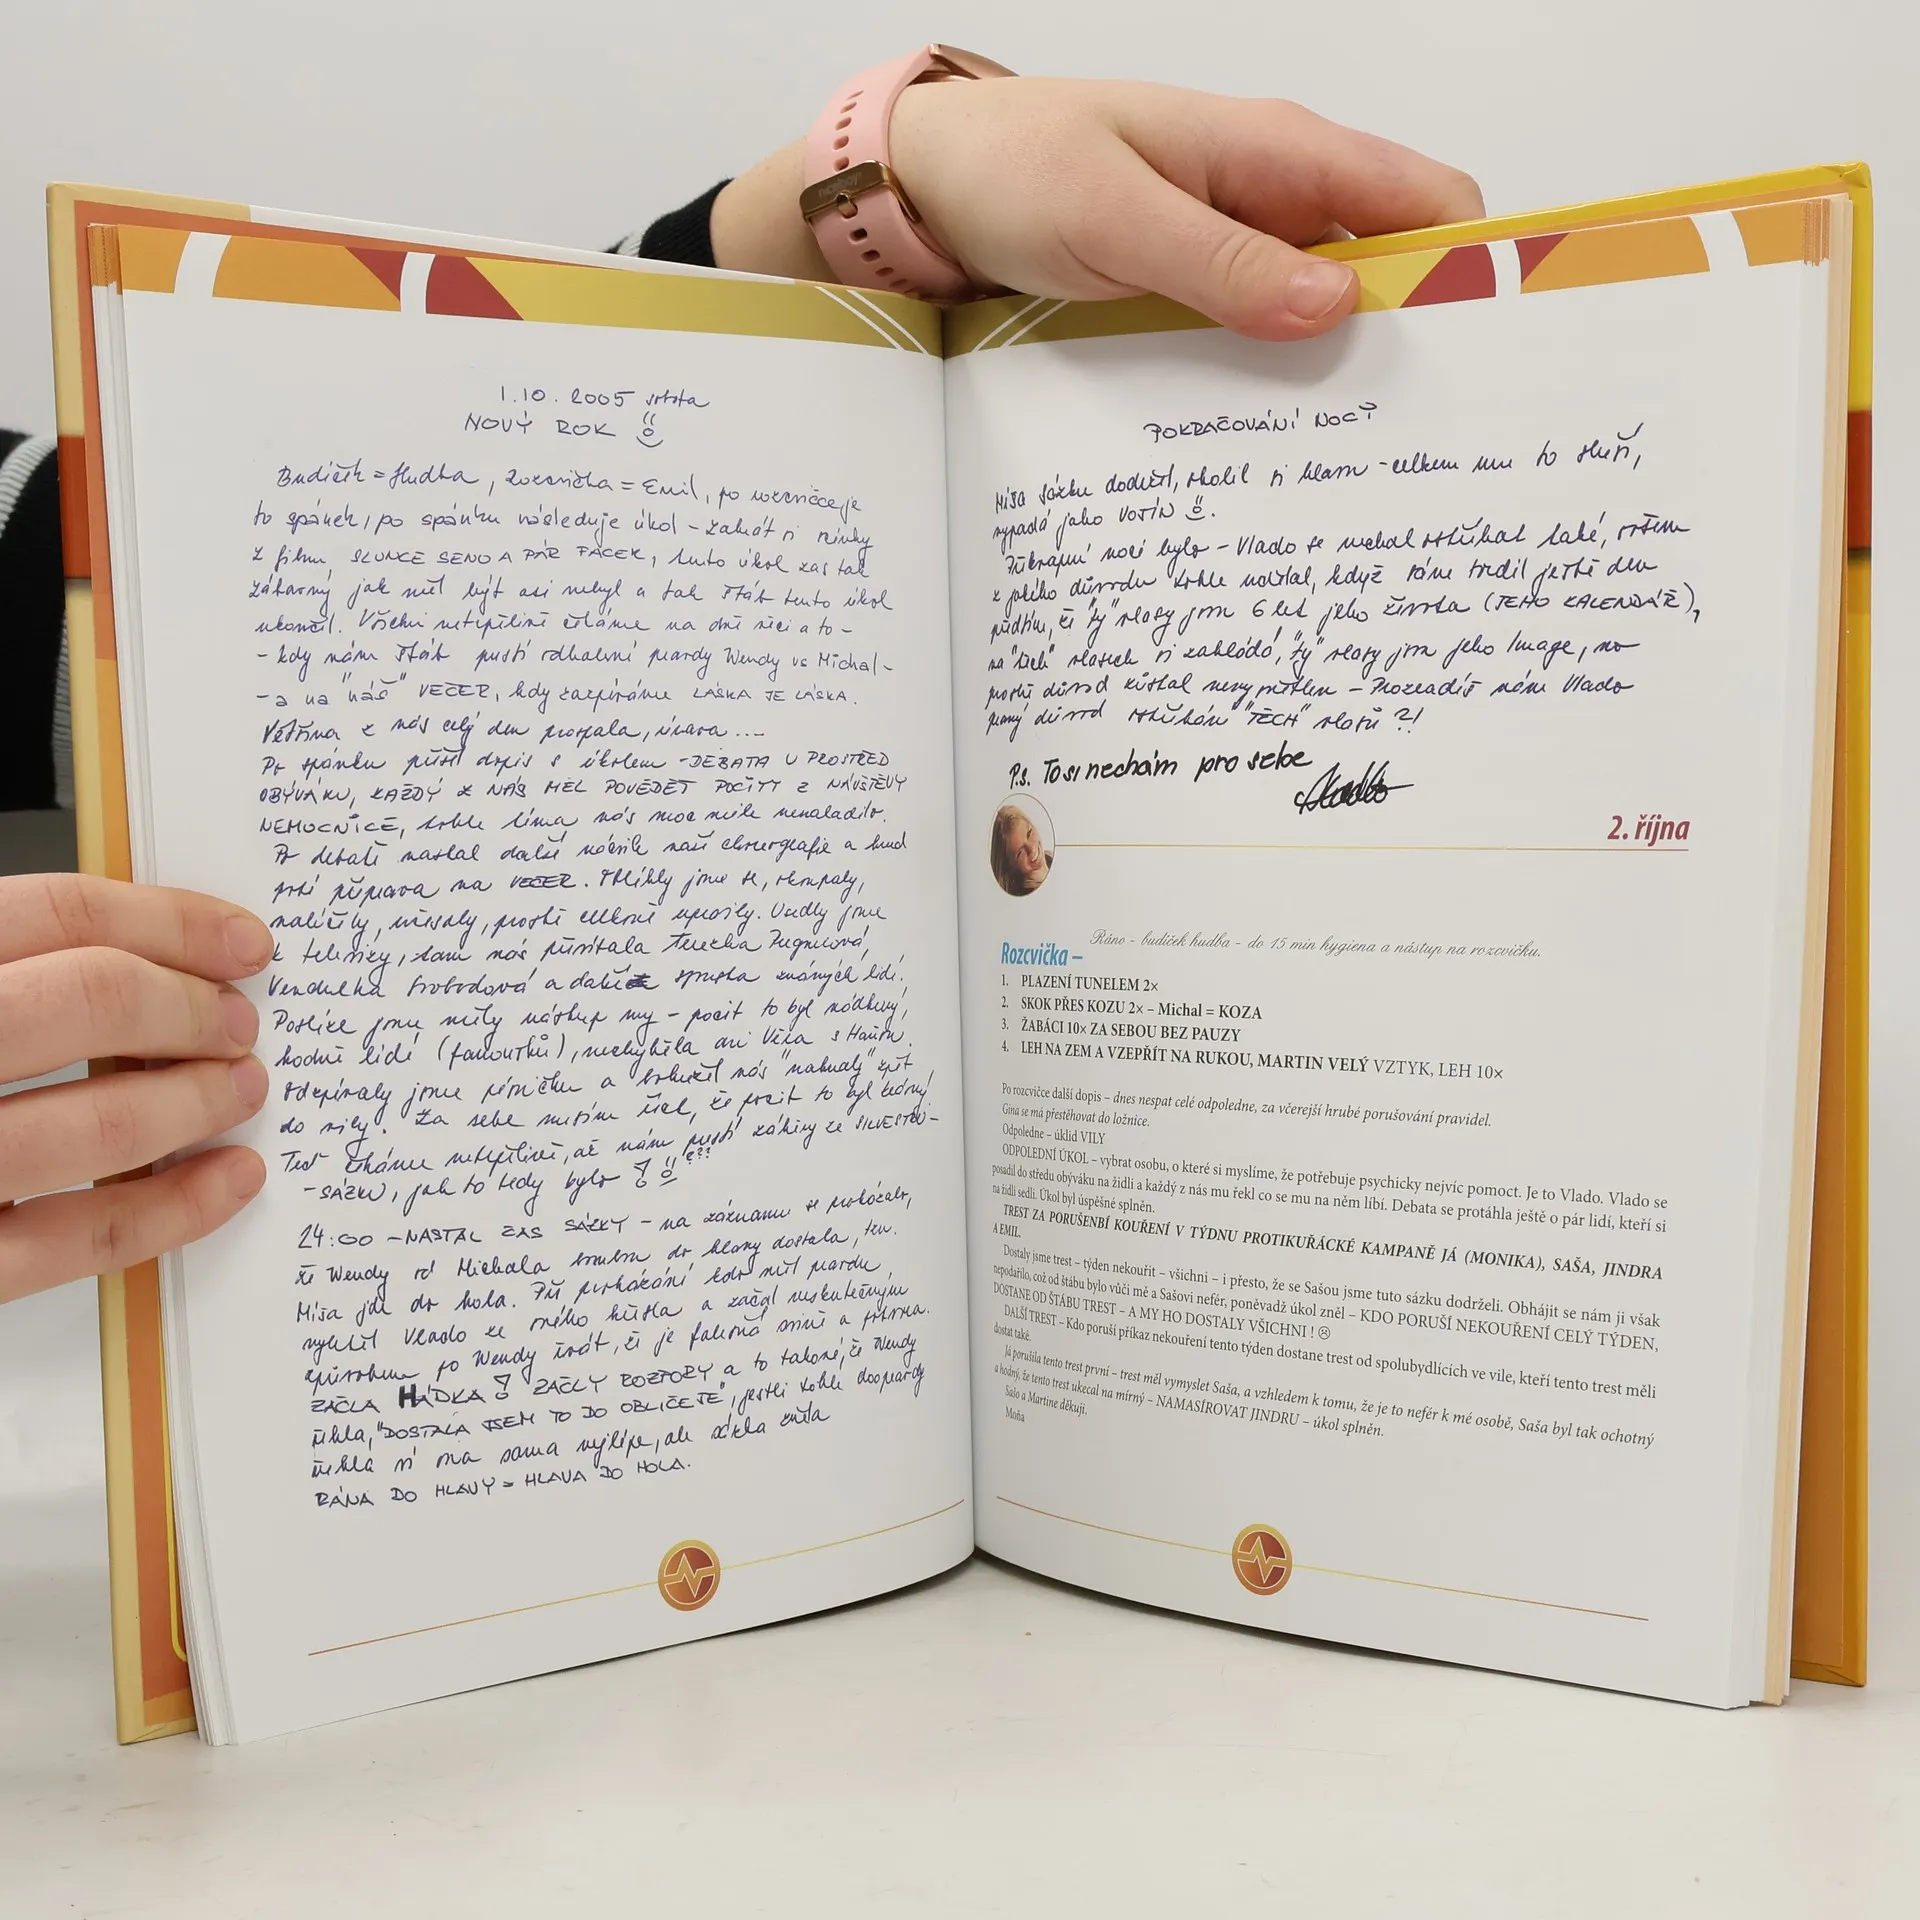 1.10.2005 sobota
NOVÝ ROK
Budíček = hudba, Rozcvička = Emil, po rozcvičce je
to spánek, po spánku následuje úkol – zahrát si scénky
z filmu SLUNCE SENO A PÁR FACEK, tento úkol zas tak
zábavný jak měl být asi nebyl a tak štáb tento úkol
ukončil. Všichni netrpělivě čekáme na dvě věci a to –
– kdy nám štáb pustí odhalení pravdy Wendy vs Michal –
– a na "náš" VEČER, kdy zazpíváme LÁSKA JE LÁSKA.
Většina z nás celý den prospala, únava ...
Po spánku přišel dopis s úkolem – DEBATA U PROSTŘED
OBÝVÁKU, KAŽDÝ Z NÁS MĚL POVĚDĚT POCITY Z NÁVŠTĚVY
NEMOCNICE, tohle téma nás moc mile nenaladilo.
Po debatě nastal další nácvik naší choreografie a hned
poté příprava na VEČER. Oblékly jsme se, skoupaly,
nalíčily, učesaly, prostě celkově upravily. Usedly jsme
k televizy, tam nás přivítala Terezka Pergnerová,
Vendulka Svobodová a další spousta známých lidí.
Posléze jsme měly nástup my – pocit to byl nádherný,
hodně lidí (fanoušků), nechyběla ani Věra s Hankou.
Odzpívaly jsme písničku a bohužel nás "nahnaly" zpět
do vily. Za sebe musím říct, že pocit to byl krásný.
Teď čekáme netrpělivě, až nám pustí záběry ze SILVESTRO-
– SÁZKU, jak to tedy bylo ! ???
24:00 – NASTAL ČAS SÁZKY – na záznamu se prokázalo,
že Wendy od Michala bombu do hlavy dostala, tzn.
Míša jde do hola. Při prokázání kdo měl pravdu
vyletěl Vlado ze svého křesla a začal neskutečným
způsobem po Wendy řvát, že je falešná svině a potvora.
ZAČLA HÁDKA ! ZAČLY ROZPORY a to takové, že Wendy
řekla, "DOSTALA JSEM TO DO OBLIČEJE", jestli tohle doopravdy
řekla ví ona sama nejlépe, ale sázka zněla
RÁNA DO HLAVY = HLAVA DO HOLA.
POKRAČOVÁNÍ NOCY
Míša sázku dodržel, oholil si hlavu – celkem mu to sluší,
vypadá jako VOJÍN
Překvapení nocí bylo – Vlado se nechal ostříhat také, ovšem
z jakého důvodu tohle udělal, když ráno tvrdil ještě den
předtím, že "ty" vlasy jsou 6 let jeho života (JEHO KALENDÁŘ),
na "těch" vlasech si zakládá, "ty" vlasy jsou jeho Image, no
prostě důvod zůstal nevysvětlen – Prozradíš nám Vlado
pravý důvod ostříhání "TĚCH" vlasů ?!
P.s. To si nechám pro sebe
Vlado
2. října
Ráno - budíček hudba - do 15 min hygiena a nástup na rozcvičku.
Rozcvička –
1. PLAZENÍ TUNELEM 2×
2. SKOK PŘES KOZU 2× – Michal = KOZA
3. ŽABÁCI 10× ZA SEBOU BEZ PAUZY
4. LEH NA ZEM A VZEPŘÍT NA RUKOU, MARTIN VELÝ VZTYK, LEH 10×
Po rozcvičce další dopis – dnes nespat celé odpoledne, za včerejší hrubé porušování pravidel.
Gina se má přestěhovat do ložnice.
Odpoledne – úklid VILY
ODPOLEDNÍ ÚKOL – vybrat osobu, o které si myslíme, že potřebuje psychicky nejvíc pomoct. Je to Vlado. Vlado se
posadil do středu obýváku na židli a každý z nás mu řekl co se mu na něm líbí. Debata se protáhla ještě o pár lidí, kteří si
na židli sedli. Úkol byl úspěšné splněn.
TREST ZA PORUŠENBÍ KOUŘENÍ V TÝDNU PROTIKUŘÁCKÉ KAMPANĚ JÁ (MONIKA), SAŠA, JINDRA
A EMIL.
Dostaly jsme trest – týden nekouřit – všichni – i přesto, že se Sašou jsme tuto sázku dodrželi. Obhájit se nám ji však
nepodařilo, což od štábu bylo vůči mě a Sašovi nefér, poněvadž úkol zněl – KDO PORUŠÍ NEKOUŘENÍ CELÝ TÝDEN,
DOSTANE OD ŠTÁBU TREST – A MY HO DOSTALY VŠICHNI ! ☹
DALŠÍ TREST – Kdo poruší příkaz nekouření tento týden dostane trest od spolubydlících ve vile, kteří tento trest měli
dostat také.
Já porušila tento trest první – trest měl vymyslet Saša, a vzhledem k tomu, že je to nefér k mé osobě, Saša byl tak ochotný
a hodný, že tento trest ukecal na mírný – NAMASÍROVAT JINDRU – úkol splněn.
Sašo a Martine děkuji.
Moňa